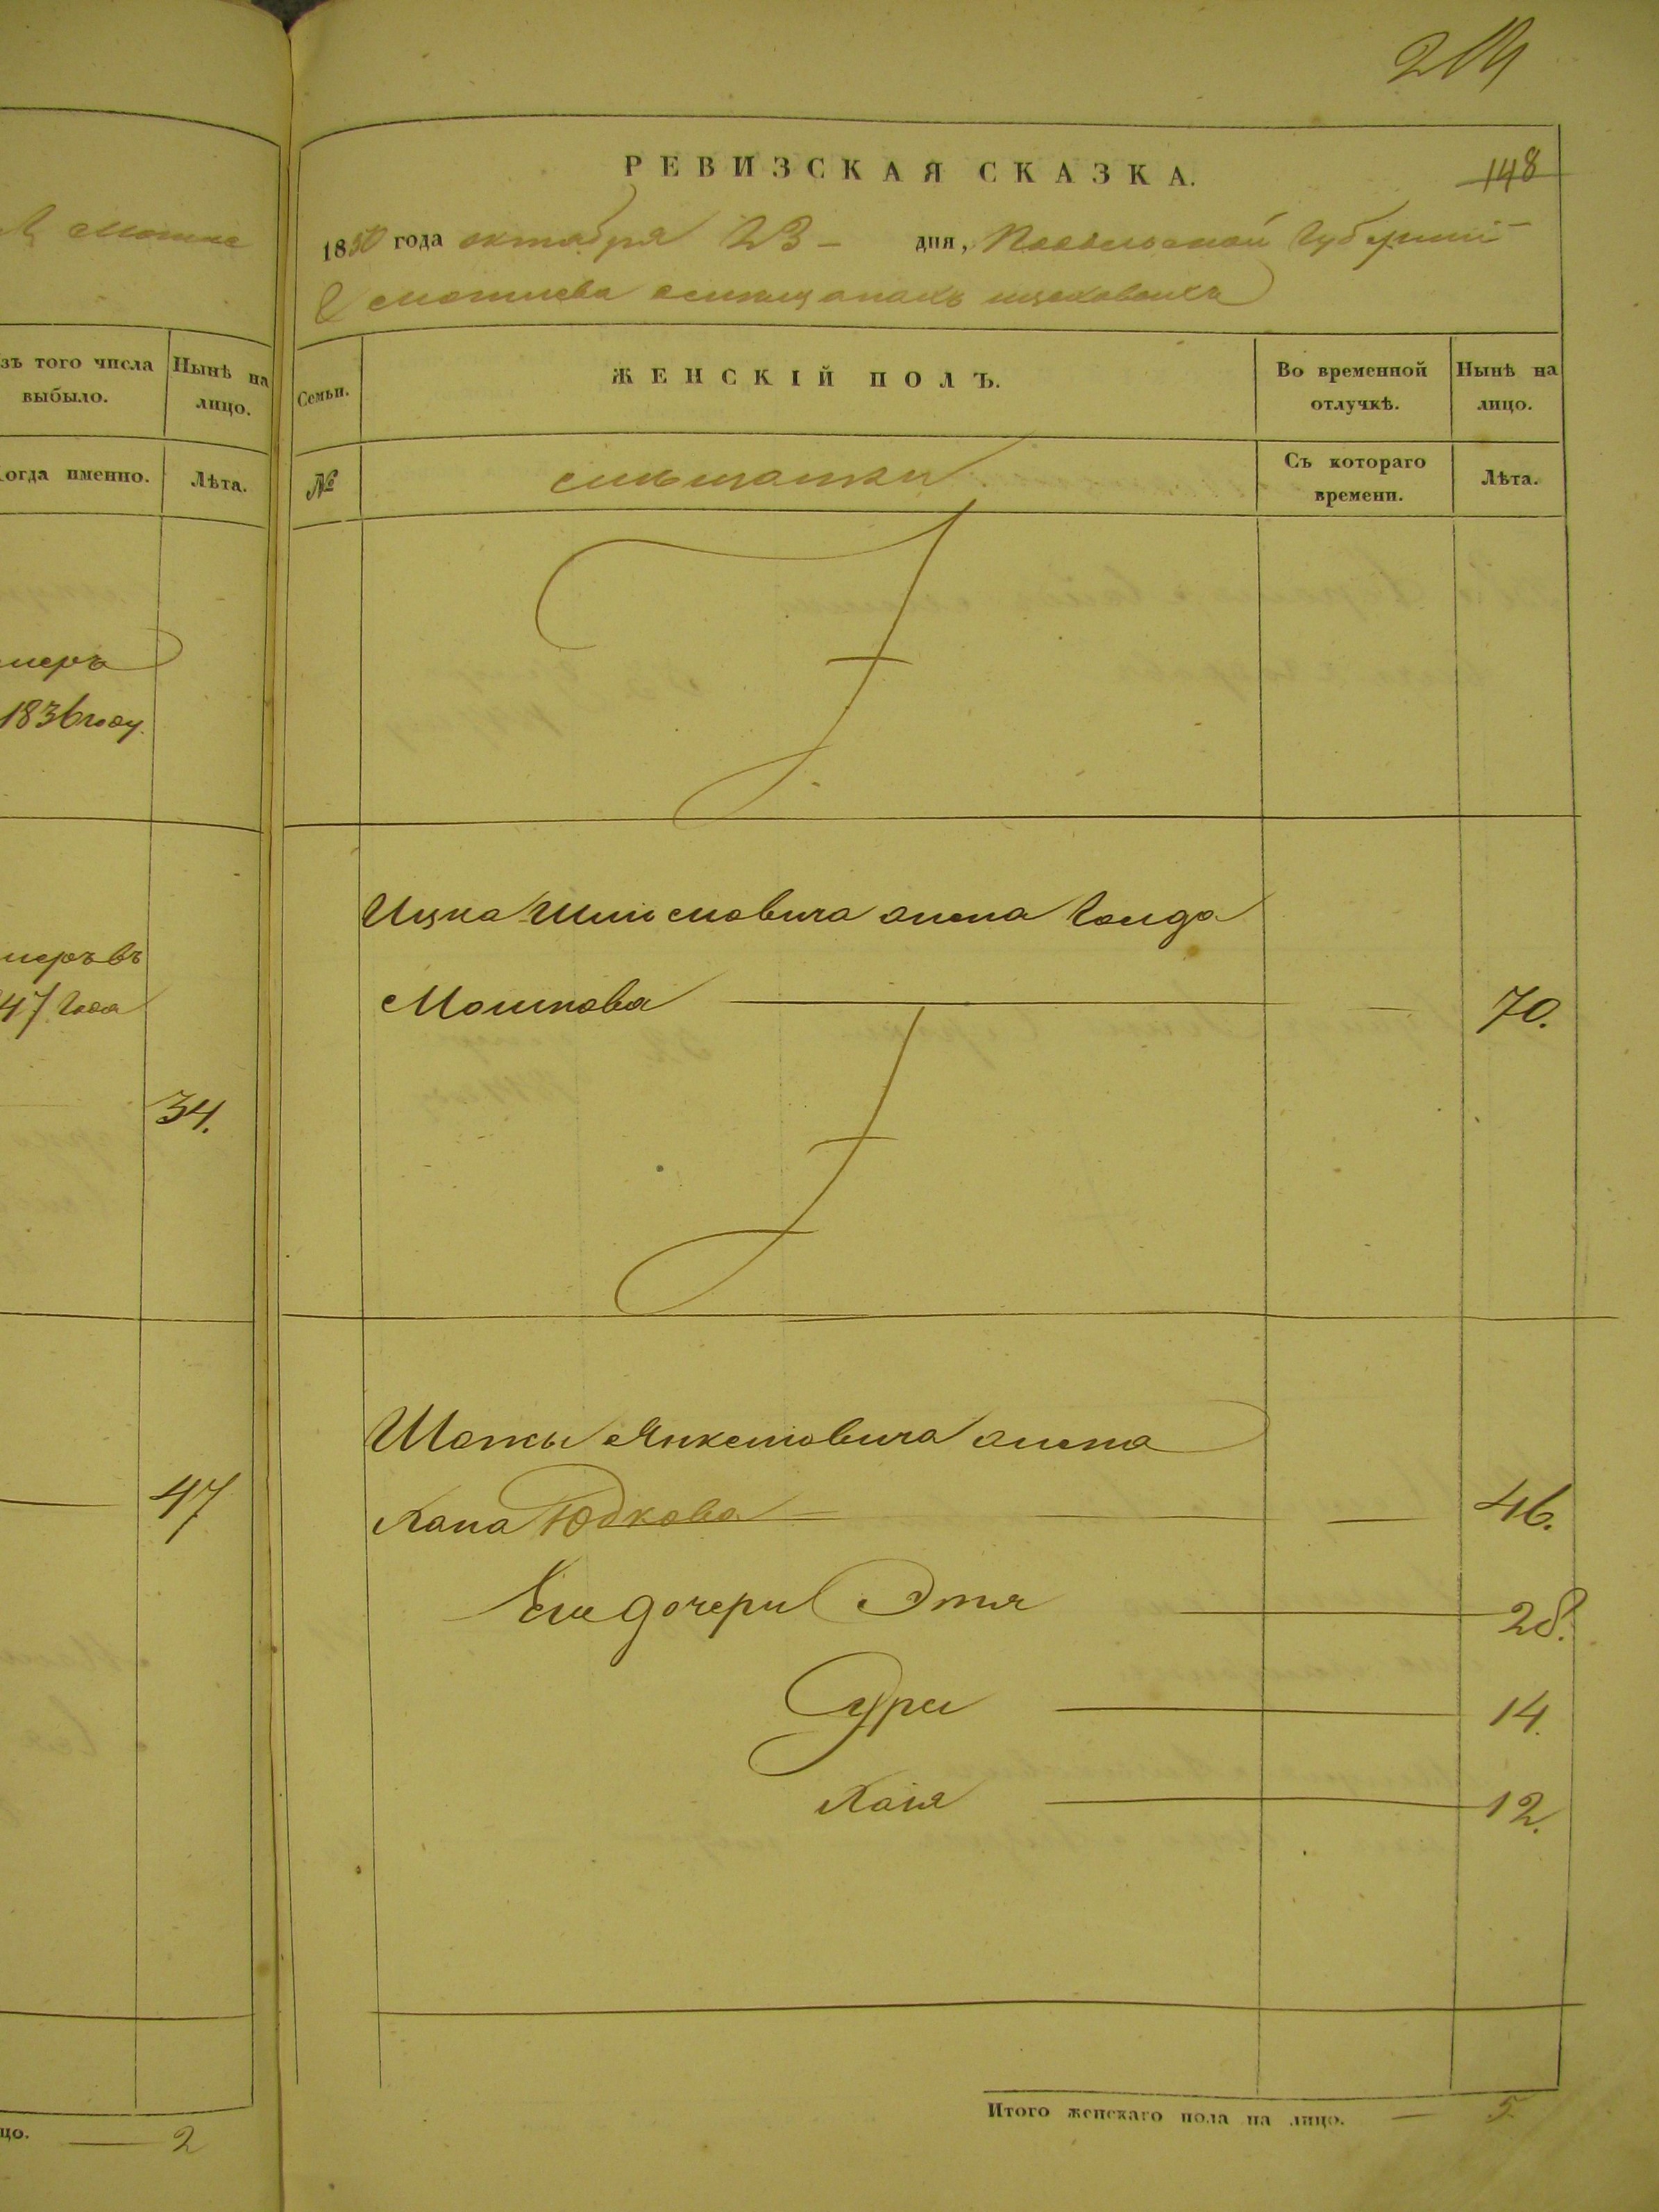 214
РЕВИЗСКАЯ СКАЗКА.
148
1850 года октября 23 – дня, Подольской Губернии
Могилева о мещанахъ
зъ того числа выбыло.
Нынѣ на лицо.
Семьи.
ЖЕНСКІЙ ПОЛЪ.
Во временной отлучкѣ.
Нынѣ на лицо.
огда именно.
Лѣта.
№
мещанки
Съ котораго времени.
Лѣта.
меръ
1836 году.
Ицка Шмулевича жена Голда
меръ въ
Мошкова — — 70.
47 года
34.
Шапсы Янкелевича жена
47
Хана Юдкова — — 46.
Его дочери Этя — 28.
Сура — 14.
Хая — 12.
Итого женскаго пола на лицо. — 5
цо. — 2